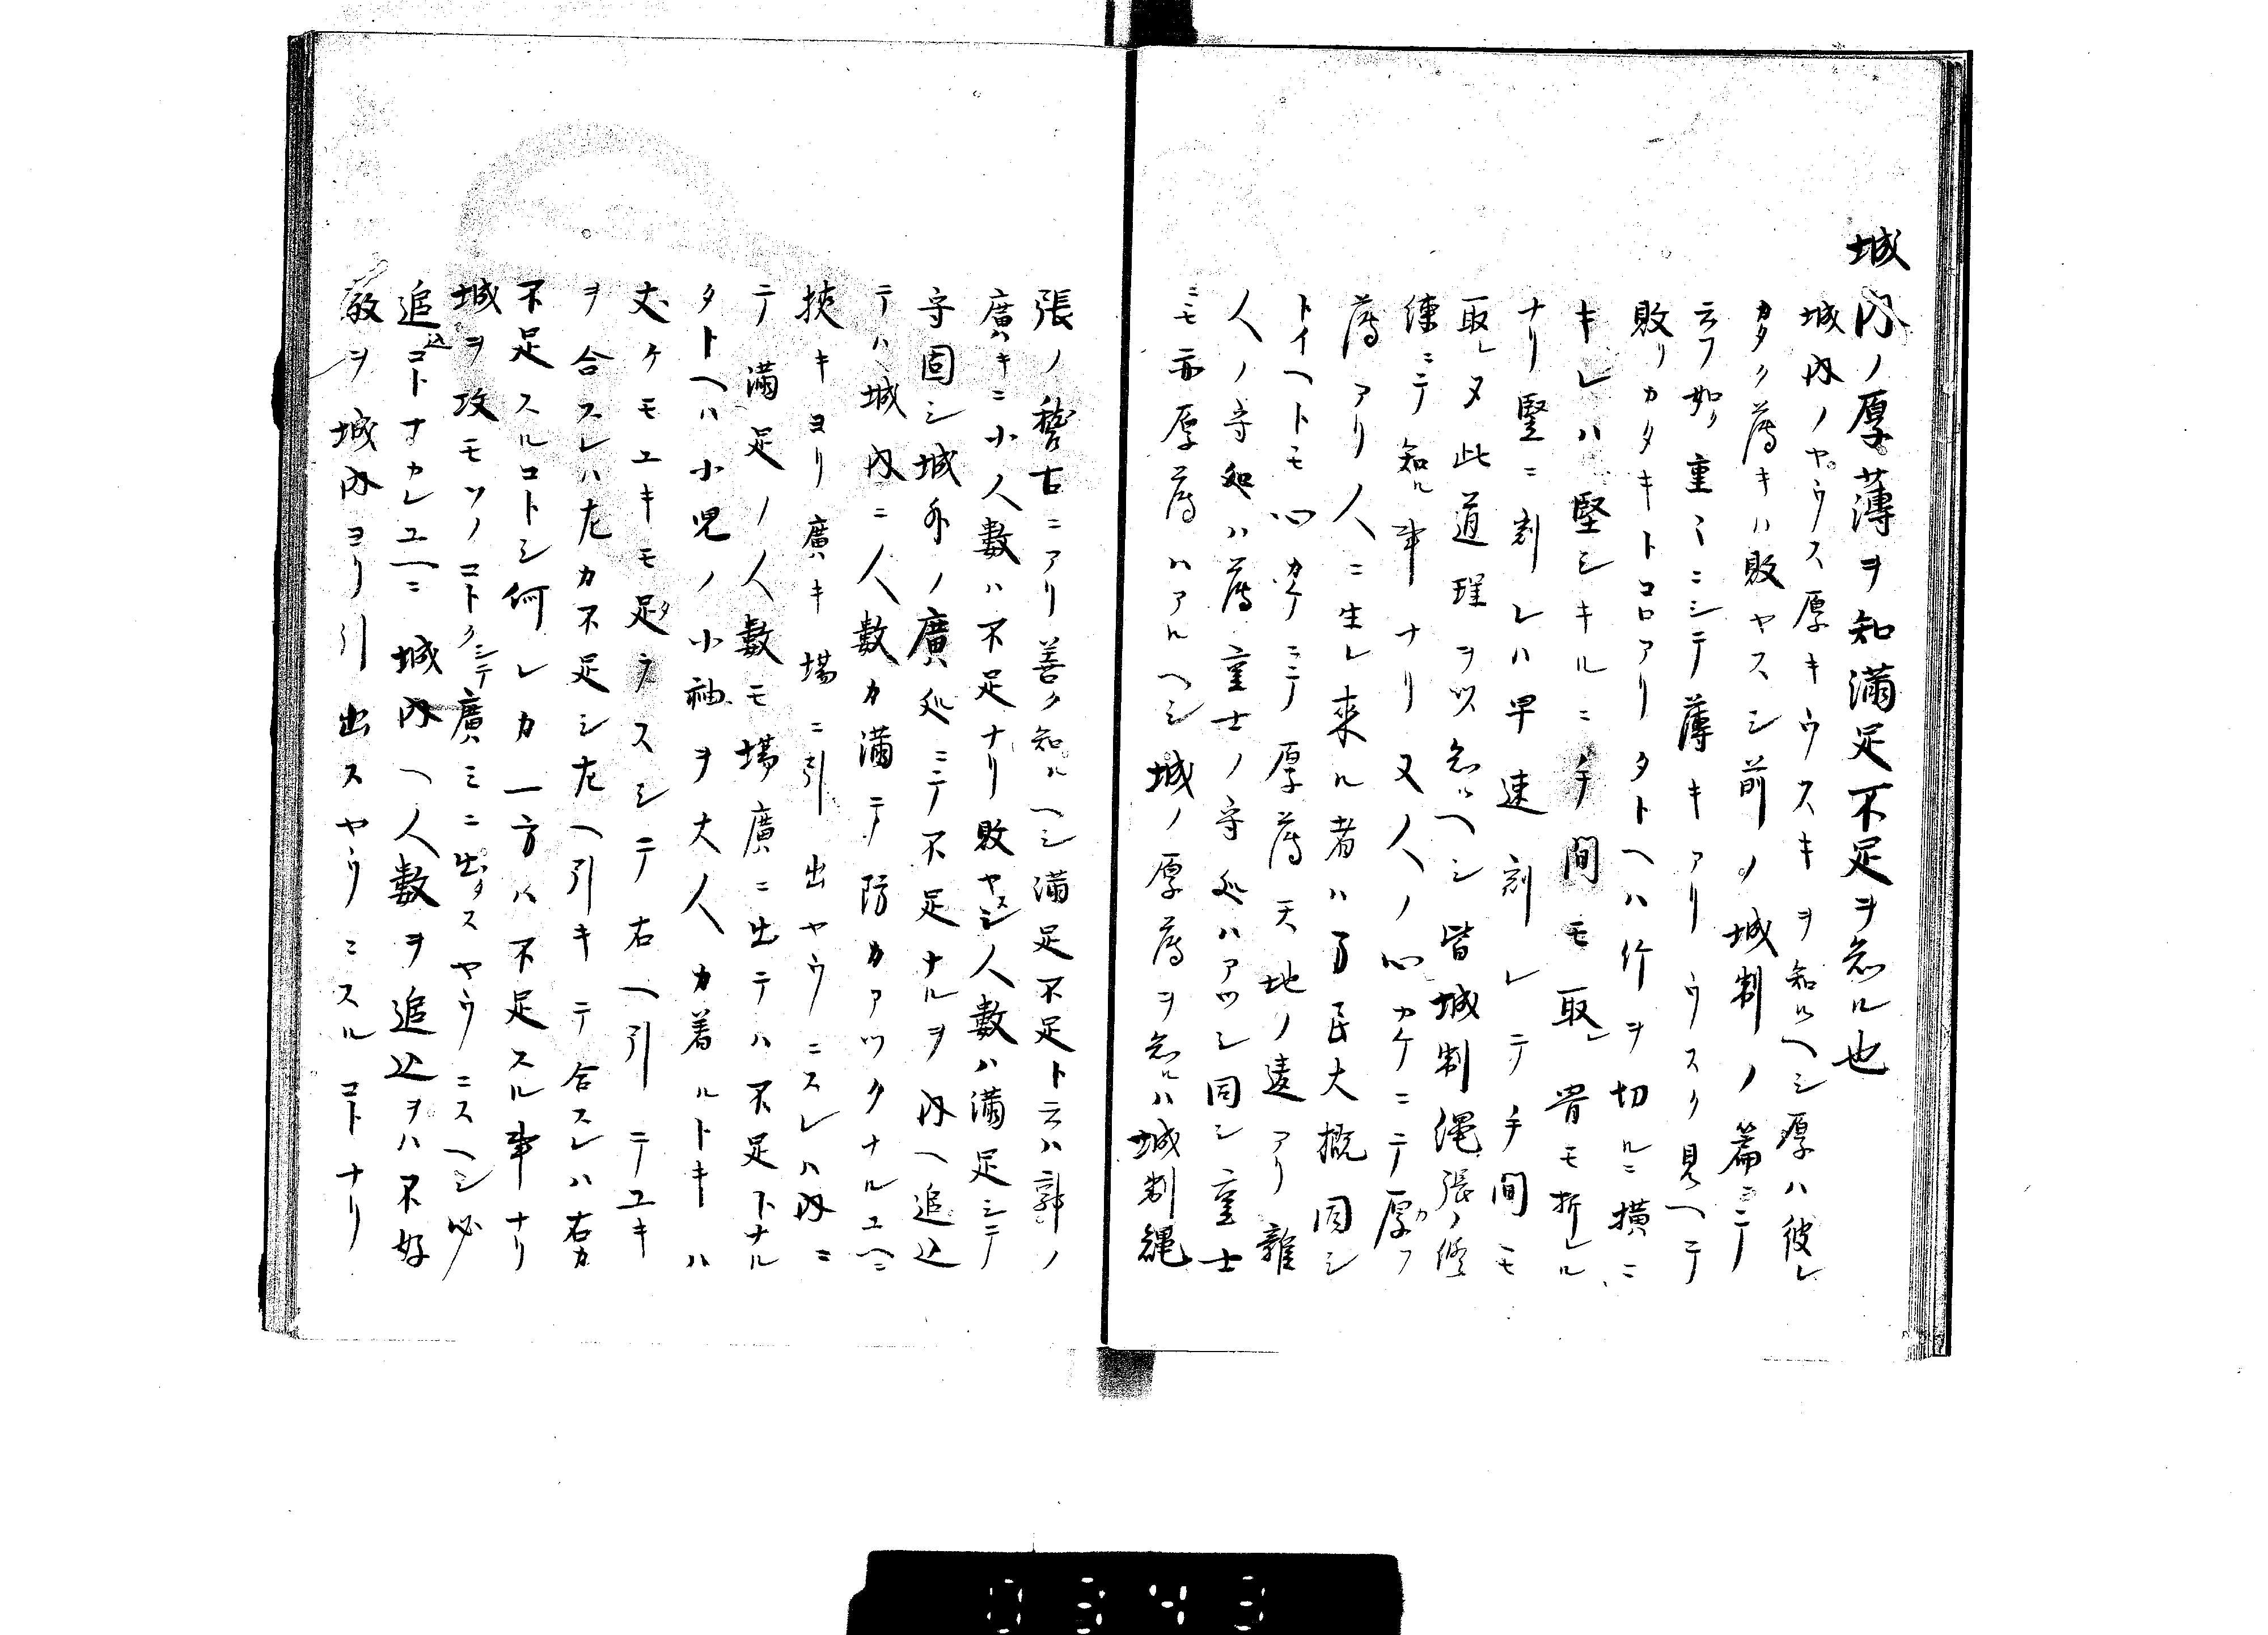 城内ノ厚薄ヲ知満足不足ヲ知ル也
城内ノヤウス厚キウスキヲ知ルヘシ厚ハ彼レ
カタク薄キハ敗ヤスシ前ノ城制ノ篇ニテ
云フ如ク重々ニシテ薄キアリウスク見ヘテ
敗リカタキトコロアリタトヘハ竹ヲ切ルニ横ニ
キレハ堅シキルニ手間モ取レ骨モ折レル
ナリ竪ニ割レハ早速割レテ手間モ
取レヌ此道理ヲ以知ルヘシ皆城制縄張ノ修
練ニテ知ル事ナリ又人ノ心カケニテ厚フ
薄アリ人ニ生レ来ル者ハ万民大概同シ
トイヘトモ心カケニテ厚薄天地ノ違アリ雜
人ノ守処ハ薄重士ノ守処ハアツシ同シ重士
ニモ亦厚薄ハアルヘシ城ノ厚薄ヲ知ルハ城制縄
張ノ稽古ニアリ善ク知ルヘシ満足不足ト云ハ郭ノ
廣キニ小人數ハ不足ナリ敗ヤスシ人數ハ満足シテ
守固シ城外ノ廣処ニテ不足ナルヲ内ヘ追込
テハ城内ニ人數カ満テ防カアツクナルユヘニ
挟キヨリ廣キ場ニ引出ヤウニスレハ内ニ
テ満足ノ人數モ場廣ニ出テハ不足トナル
タトヘハ小児ノ小袖ヲ大人カ着ルトキハ
丈ケモユキモ足ラスシテ右ヘ引テユキ
ヲ合スレハ左カ不足シ左ヘ引キテ合スレハ右カ
不足スルコトシ何レカ一方ハ不足スル事ナリ
城ヲ攻モソノコトクシテ廣ミニ出タスヤウニスヘシ必
追込コトナカレユヘニ城内ヘ人數ヲ追込ヲハ不好
敵ヲ城内ヨリ引出スヤウニスルコトナリ
0343